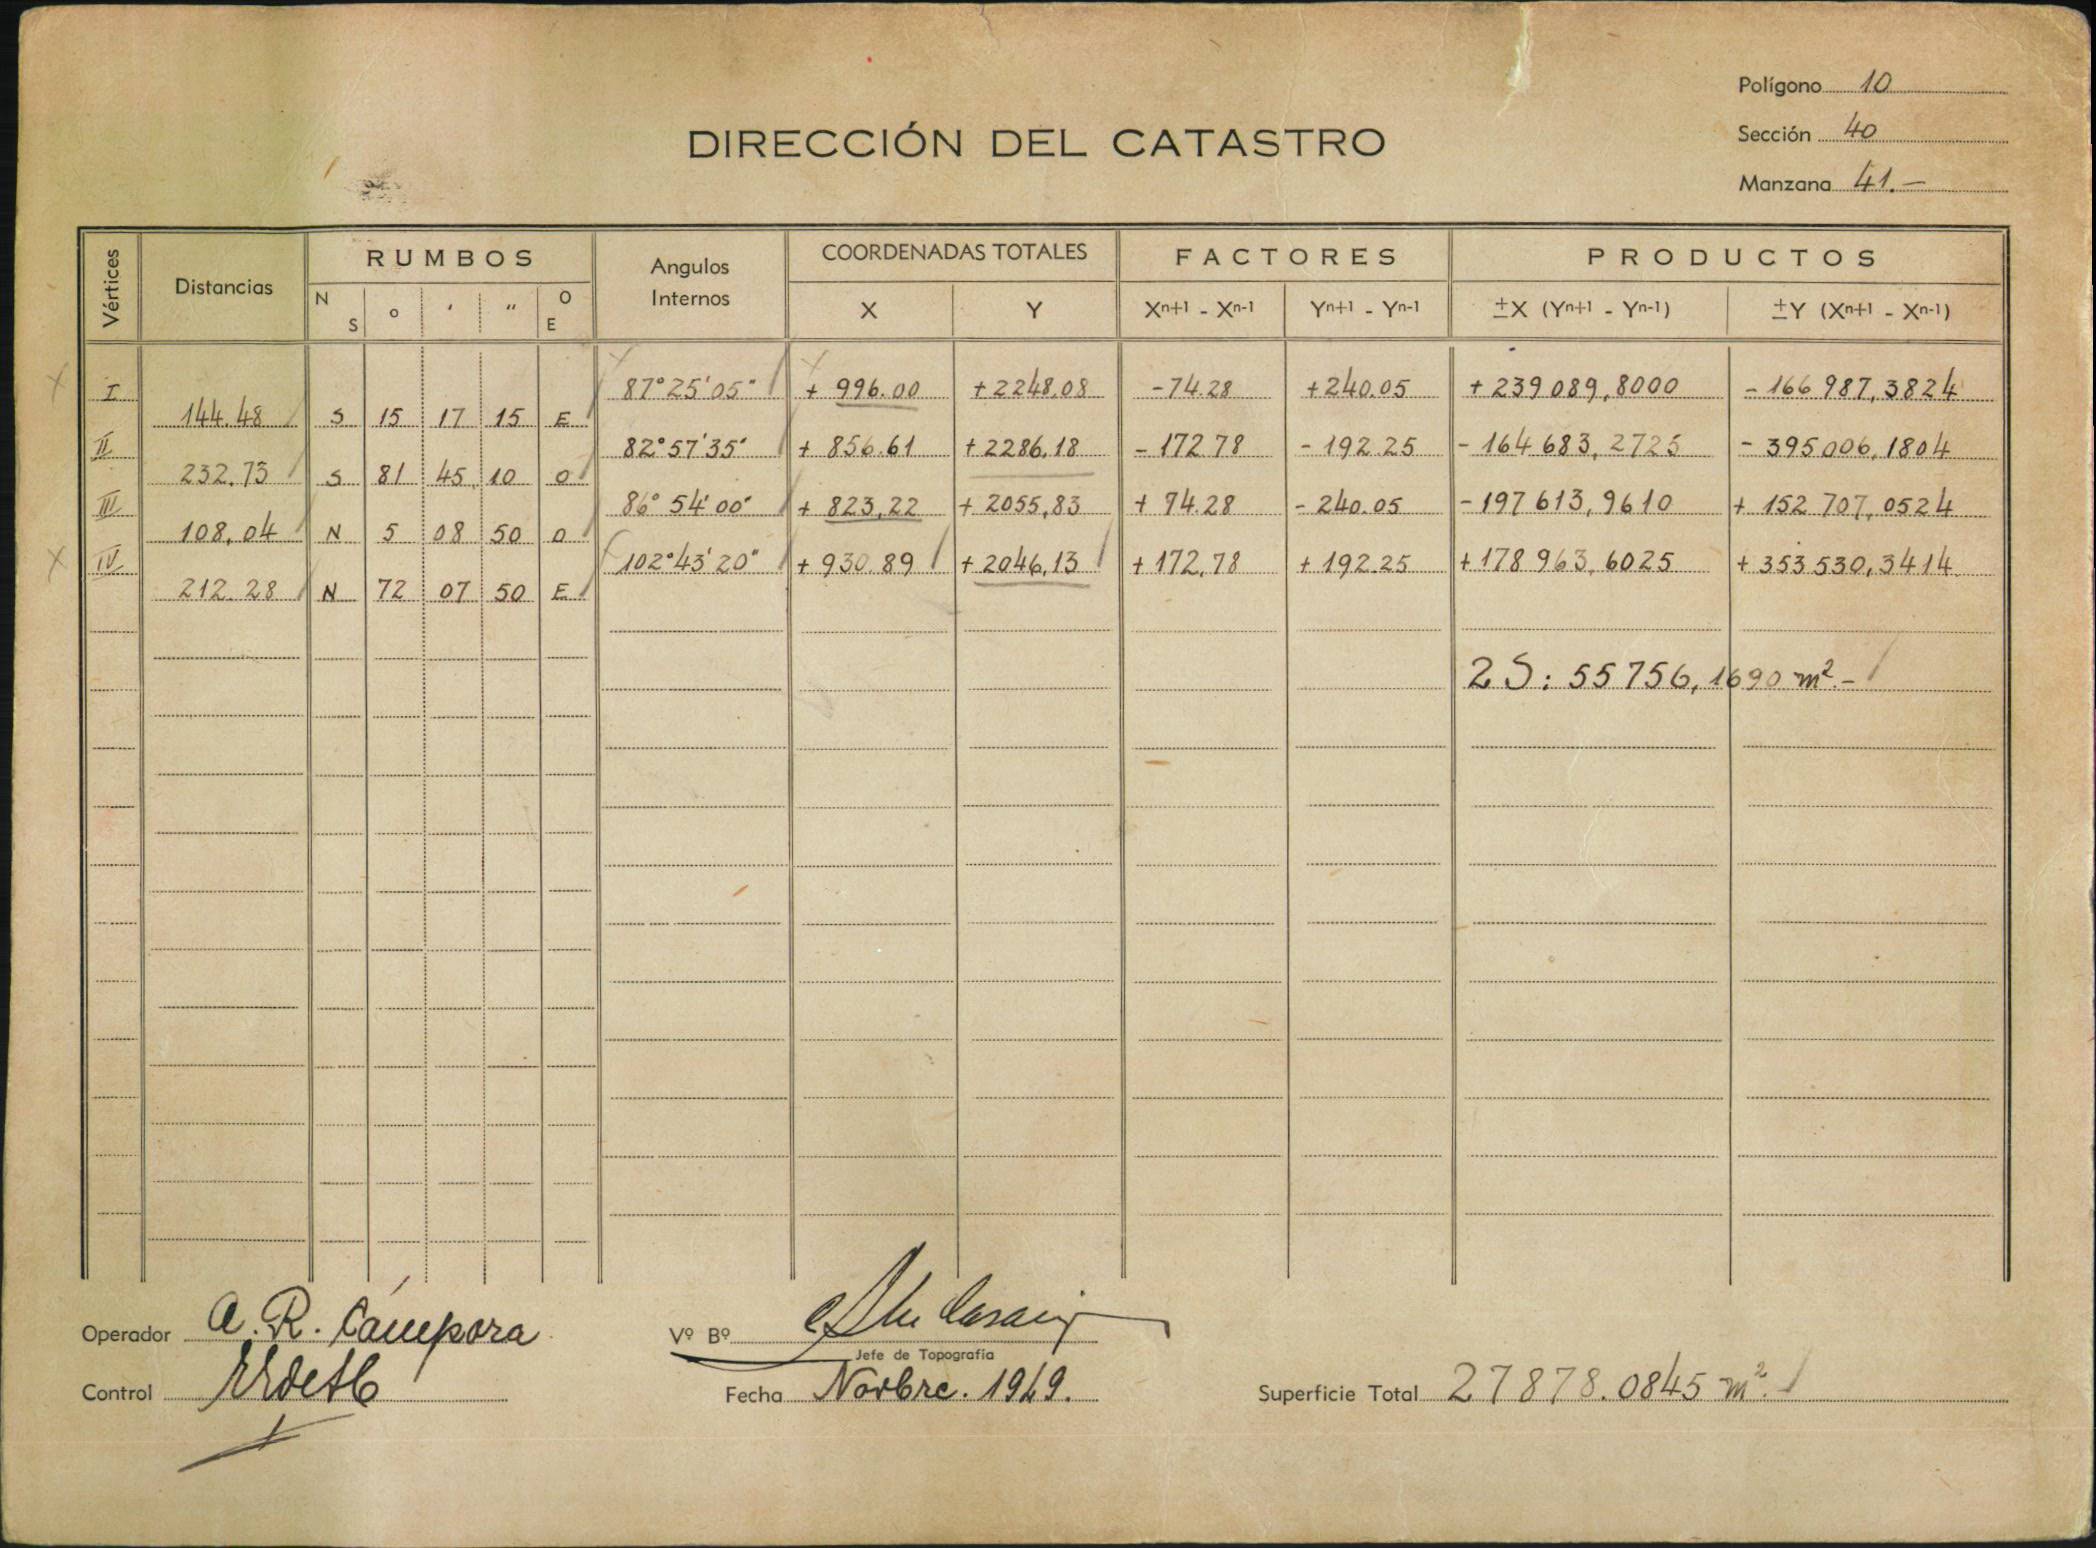 Polígono 10
Sección 40
Manzana 41.-
DIRECCIÓN DEL CATASTRO
Vértices Distancias RUMBOS Angulos Internos COORDENADAS TOTALES FACTORES PRODUCTOS
N S ° ' " O E X Y Xn+1 - Xn-1 Yn+1 - Yn-1 ±X (Yn+1 - Yn-1) ±Y (Xn+1 - Xn-1)
I 87°25'05" + 996.00 +2248.08 -74.28 +240.05 +239089,8000 -166987,3824
144.48 S 15 17 15 E
II 82°57'35" + 856.61 +2286,18 -172.78 -192.25 -164683,2725 -395006,1804
232.73 S 81 45 10 O
III 86°54'00" + 823,22 +2055,83 +74.28 -240.05 -197613,9610 +152707,0524
108,04 N 5 08 50 O
IV 102°43'20" +930.89 +2046,13 +172,78 +192.25 +178963,6025 +353530,3414
212.28 N 72 07 50 E
2S: 55756,1690 m².-
Operador A. R. Cámpora
Vº Bº
Jefe de Topografía
Control
Fecha Novbre. 1949.
Superficie Total 27878.0845 m².